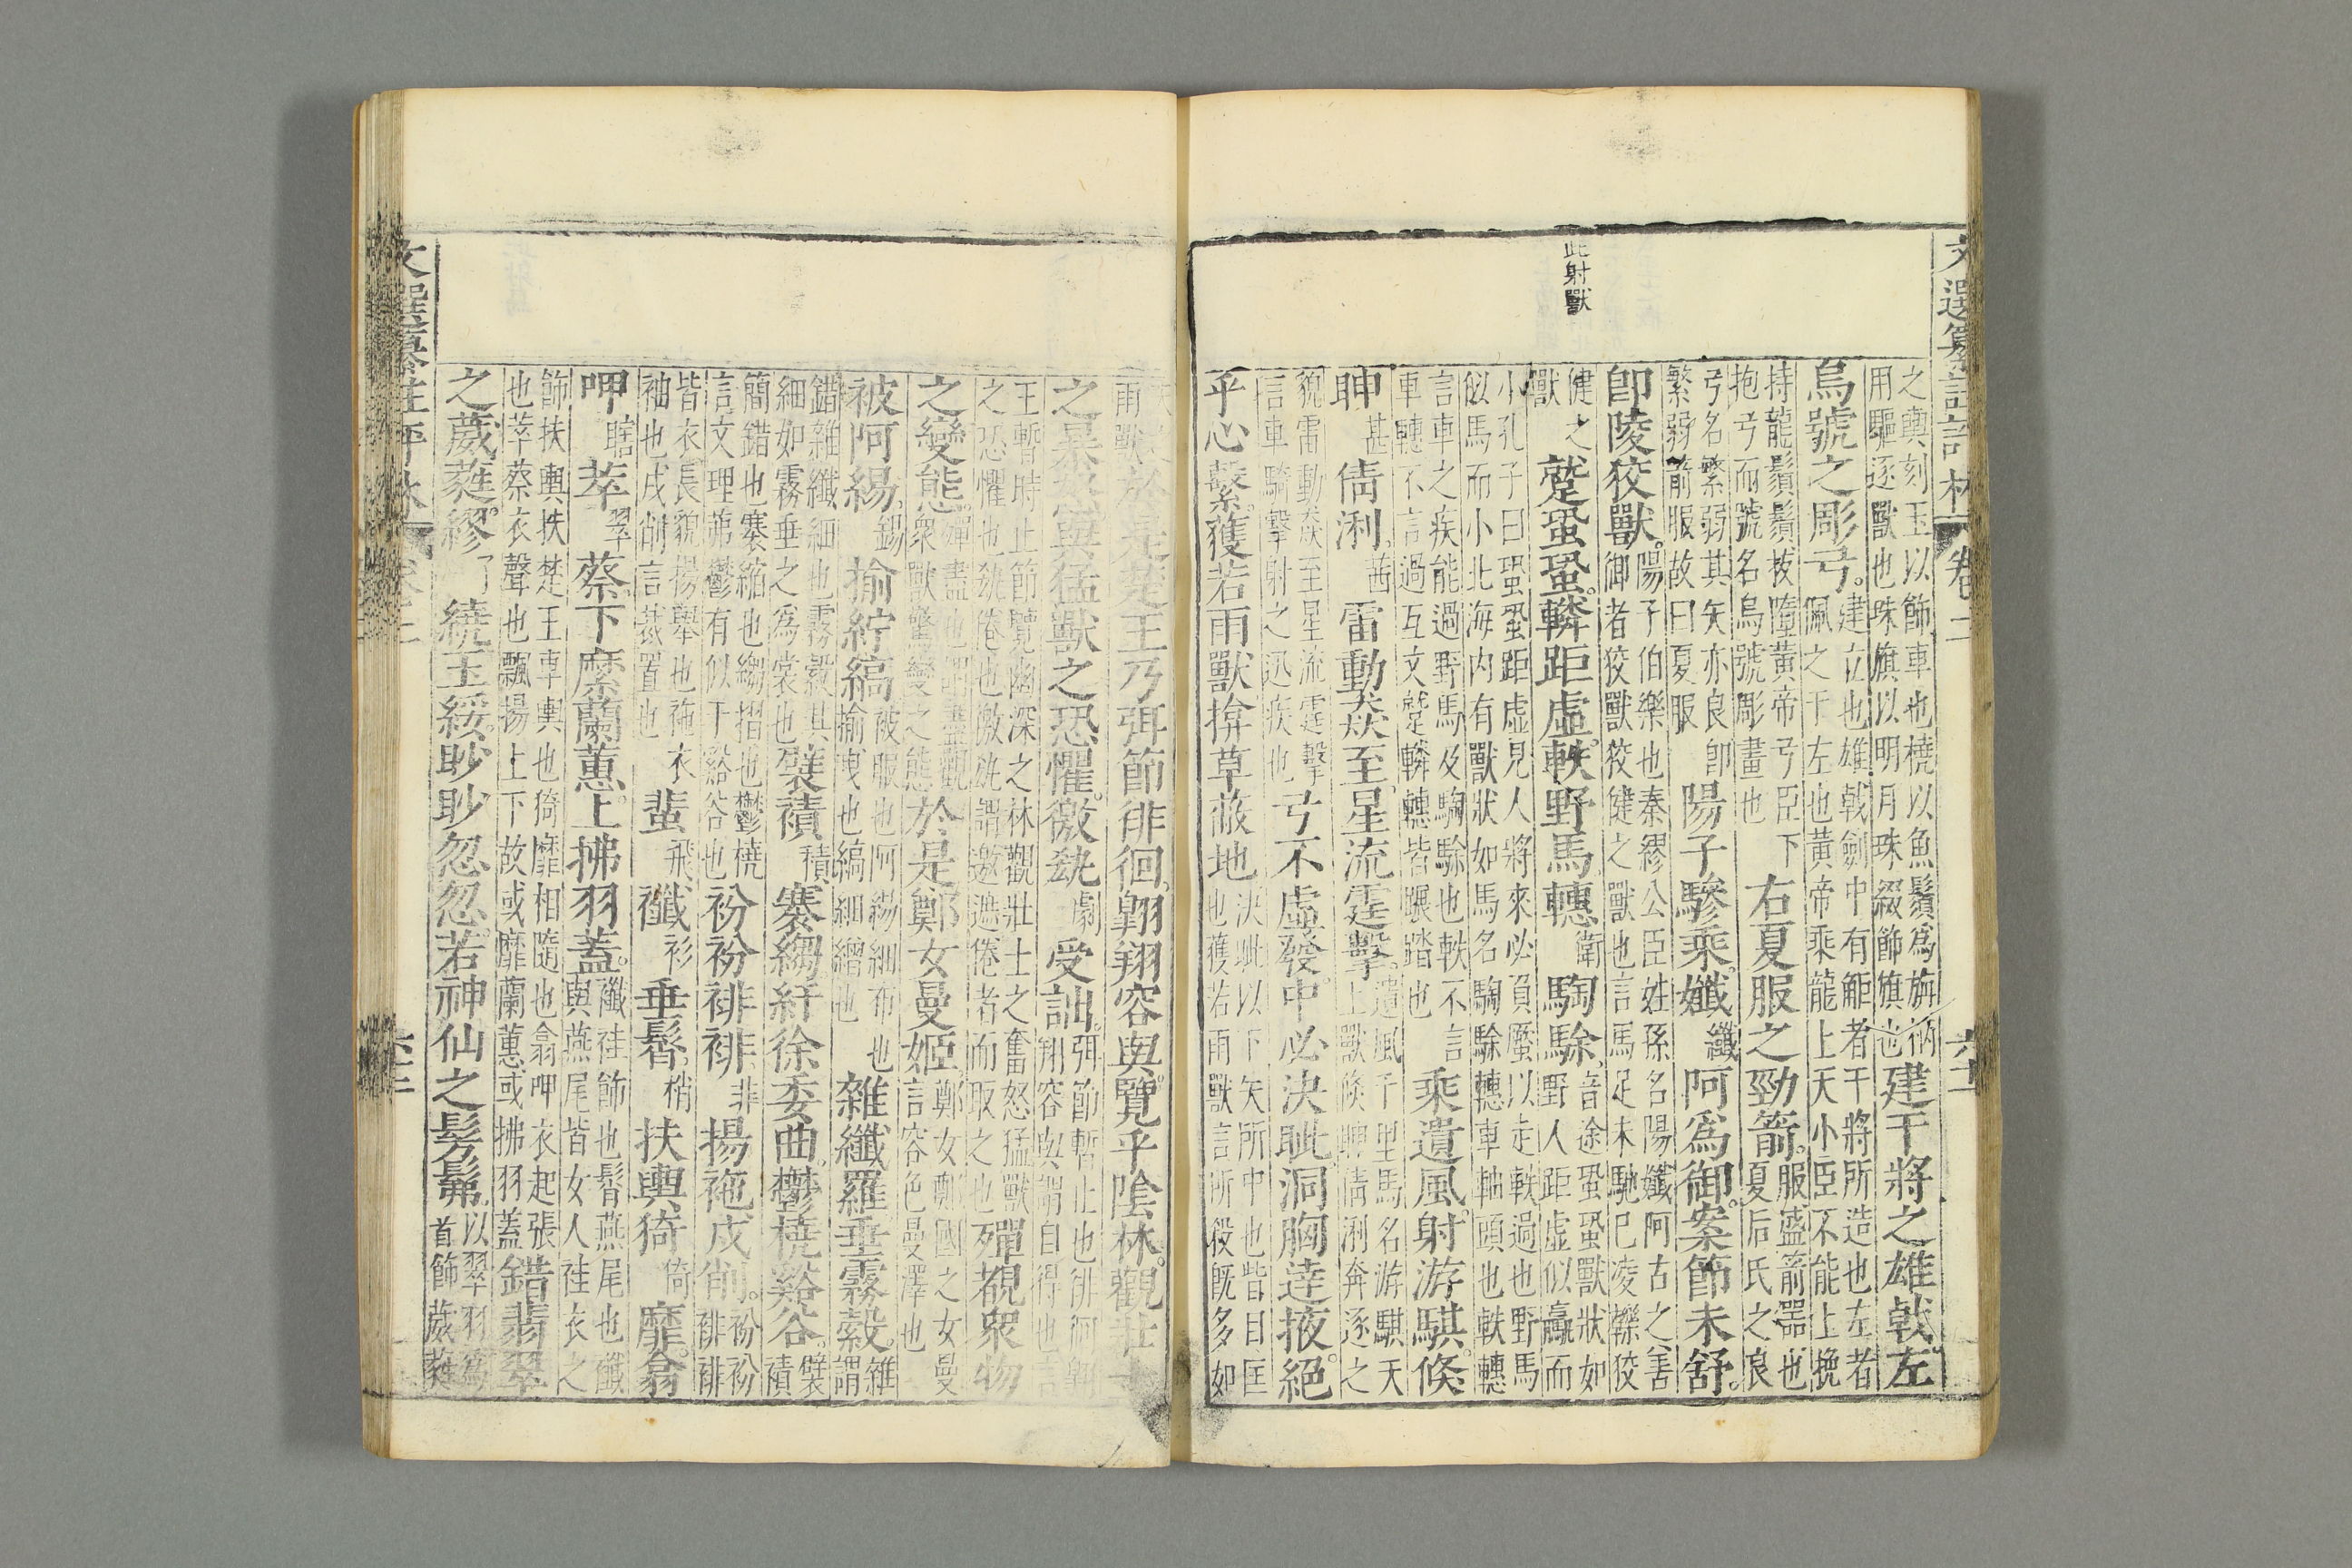 文選纂註評林 卷二
此射獸
之輿刻玉以飾車也橈以魚鬚爲旃柄
用驅逐獸也珠旗以明月珠綴飾旗也
建干將之雄戟左
烏號之彫弓
建立也雄戟劍中有鮔者干將所造也左者
佩之于左也黃帝乘龍上天小臣不能上挽
持龍鬚鬚拔墮黃帝弓臣下
抱弓而號名烏號彫畫也
右夏服之勁箭
服盛箭器也
夏后氏之良
弓名繁弱其矢亦良卽
繁弱箭服故曰夏服
陽子驂乘孅
纖
阿爲御案節未舒
卽陵狡獸
陽子伯樂也秦繆公臣姓孫名陽孅阿古之善
御者狡獸狡健之獸也言馬足未馳已凌轢狡
健之
獸
蹵蛩蛩轔距虛軼野馬轊
衛
騊駼
音途蛩蛩獸狀如
野人距虛似驘而
小孔子曰蛩蛩距虛見人將來必負蟨以走軼過也野馬
似馬而小北海内有獸狀如馬名騊駼轊車軸頭也軼轊
言車之疾能過野馬及騊駼也軼不言
車轊不言過互文蹵轔轊皆蹍踏也
乘遺風射游騏倏
眒
甚
倩浰
茜
雷動猋至星流霆擊
遺風千里馬名游騏天
上獸倏眒倩浰奔逐之
貌雷動猋至星流霆擊
言車騎擊射之迅疾也
弓不虛發中必決眦洞胸達掖絕
乎心繫獲若雨獸揜草蔽地
決眦以下矢所中也眥曰匡
也獲若雨獸言所殺旣多如
雨獸
於是楚王乃弭節徘徊翱翔容與覽乎陰林觀壯士
之暴怒與猛獸之恐懼徼𠊓
劇
受詘
弭節暫止也徘徊翱
翔容與謂自得也言
王暫時止節覽幽深之林觀壯士之奮怒猛獸
之恐懼也𠊓倦也徼𠊓謂邀遮倦者而取之也
殫覩衆物
之變態
殫盡也謂盡觀
衆獸驚變之態
於是鄭女曼姬
鄭女鄭國之女曼
言容色曼澤也
被阿緆
錫
揄紵縞
被服也阿緆細布也
揄曳也縞細繒也
雜纖羅垂霧縠
雜
謂
錯雜纖細也霧縠其
細如霧垂之爲裳也
襞襀
積
褰縐紆徐委曲鬱橈谿谷
襞
襀
簡錯也褰縮也縐摺也鬱橈
言文理茀鬱有似于谿谷也
衯衯裶裶
非
揚袘戌削
衯衯
裶裶
皆衣長貌揚舉也袘衣
袖也戌削言裁置也
蜚
飛
襳
衫
垂髾
梢
扶輿猗
倚
靡翕
呷
瞎
萃
翠
蔡下摩蘭蕙上拂羽蓋
襳袿飾也髾燕尾也襳
與燕尾皆女人袿衣之
飾扶輿扶楚王車輿也倚靡相隨也翕呷衣起張
也萃蔡衣聲也飄揚上下故或靡蘭蕙或拂羽蓋
錯翡翠
之葳蕤繆
了
繞玉綏眇眇忽忽若神仙之髣髴
以翠羽爲
首飾葳蕤
文選纂註評林 卷二